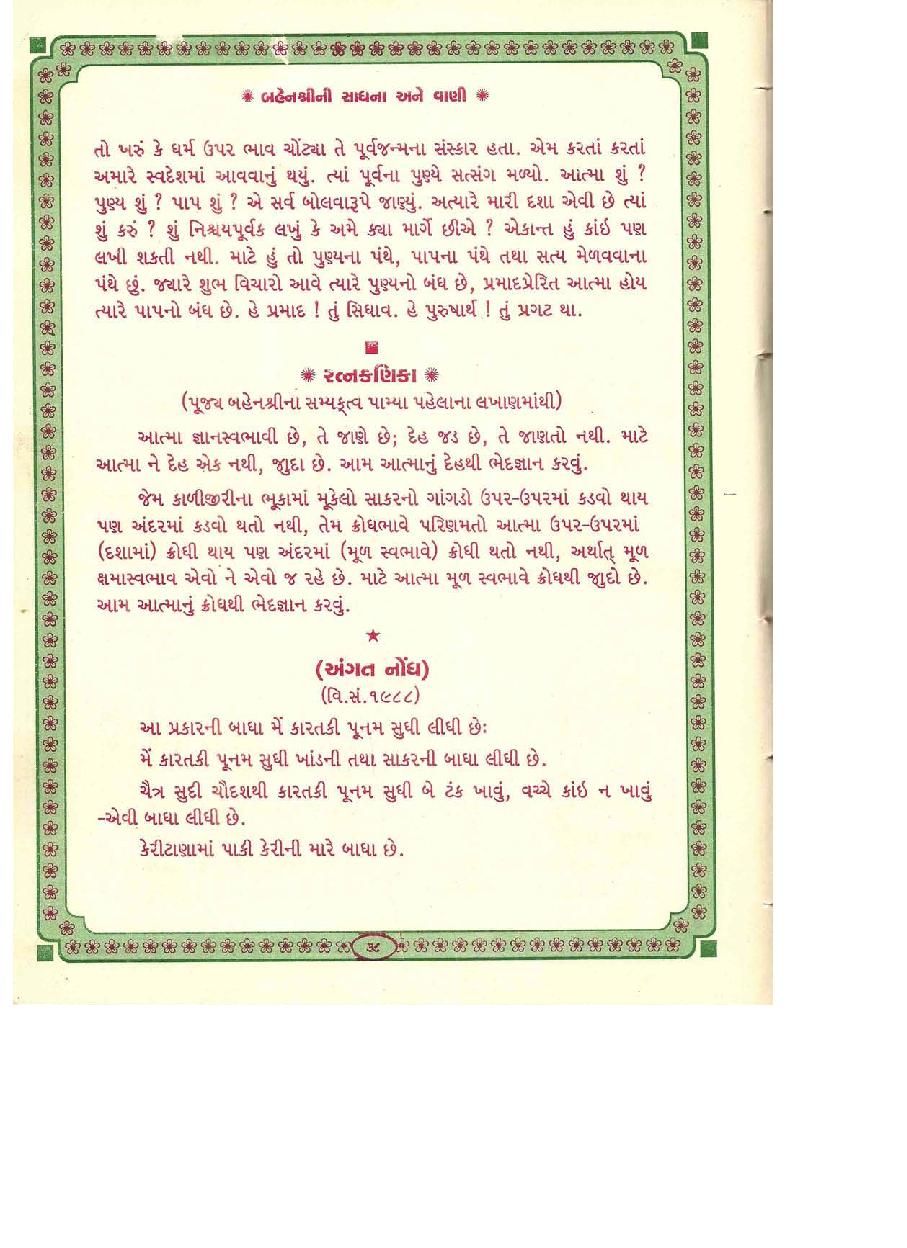 ❋ બહેનશ્રીની સાધના અને વાણી ❋
તો ખરું કે ધર્મ ઉપર ભાવ ચોંટ્યા તે પૂર્વજન્મના સંસ્કાર હતા. એમ કરતાં કરતાં
અમારે સ્વદેશમાં આવવાનું થયું. ત્યાં પૂર્વના પુણ્યે સત્સંગ મળ્યો. આત્મા શું ?
પુણ્ય શું ? પાપ શું ? એ સર્વ બોલવારૂપે જાણ્યું. અત્યારે મારી દશા એવી છે ત્યાં
શું કરું ? શું નિશ્ચયપૂર્વક લખું કે અમે ક્યા માર્ગે છીએ ? એકાન્ત હું કાંઇ પણ
લખી શકતી નથી. માટે હું તો પુણ્યના પંથે, પાપના પંથે તથા સત્ય મેળવવાના
પંથે છું. જ્યારે શુભ વિચારો આવે ત્યારે પુણ્યનો બંધ છે, પ્રમાદપ્રેરિત આત્મા હોય
ત્યારે પાપનો બંધ છે. હે પ્રમાદ ! તું સિધાવ. હે પુરુષાર્થ ! તું પ્રગટ થા.
❋ રત્નકણિકા ❋
(પૂજ્ય બહેનશ્રીના સમ્યક્ત્વ પામ્યા પહેલાના લખાણમાંથી)
આત્મા જ્ઞાનસ્વભાવી છે, તે જાણે છે; દેહ જડ છે, તે જાણતો નથી. માટે
આત્મા ને દેહ એક નથી, જુદા છે. આમ આત્માનું દેહથી ભેદજ્ઞાન કરવું.
જેમ કાળીજીરીના ભૂકામાં મૂકેલો સાકરનો ગાંગડો ઉપર-ઉપરમાં કડવો થાય
પણ અંદરમાં કડવો થતો નથી, તેમ ક્રોધભાવે પરિણમતો આત્મા ઉપર-ઉપરમાં
(દશામાં) ક્રોધી થાય પણ અંદરમાં (મૂળ સ્વભાવે) ક્રોધી થતો નથી, અર્થાત્ મૂળ
ક્ષમાસ્વભાવ એવો ને એવો જ રહે છે. માટે આત્મા મૂળ સ્વભાવે ક્રોધથી જુદો છે.
આમ આત્માનું ક્રોધથી ભેદજ્ઞાન કરવું.
★
(અંગત નોંધ)
(વિ.સં.૧૯૮૮)
આ પ્રકારની બાધા મેં કારતકી પૂનમ સુધી લીધી છેઃ
મેં કારતકી પૂનમ સુધી ખાંડની તથા સાકરની બાધા લીધી છે.
ચૈત્ર સુદી ચૌદશથી કારતકી પૂનમ સુધી બે ટંક ખાવું, વચ્ચે કાંઇ ન ખાવું
-એવી બાધા લીધી છે.
કેરીટાણામાં પાકી કેરીની મારે બાધા છે.
૩૯